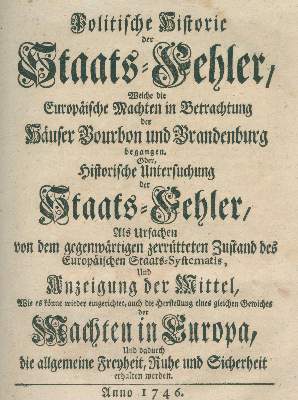 Politische Historie
der
Staats-Fehler,
Welche die
Europäische Machten in Betrachtung
der
Häuser Bourbon und Brandenburg
begangen.
Oder,
Historische Untersuchung
der
Staats-Fehler,
Als Ursachen
von dem gegenwärtigen zerrütteten Zustand des
Europäischen Staats-Systematis,
Und
Anzeigung der Mittel,
Wie es könne wieder eingerichtet, auch die Herstellung eines gleichen Gewichts
der
Machten in Europa,
Und dadurch
die allgemeine Freyheit, Ruhe und Sicherheit
erhalten werden.
Anno 1746.